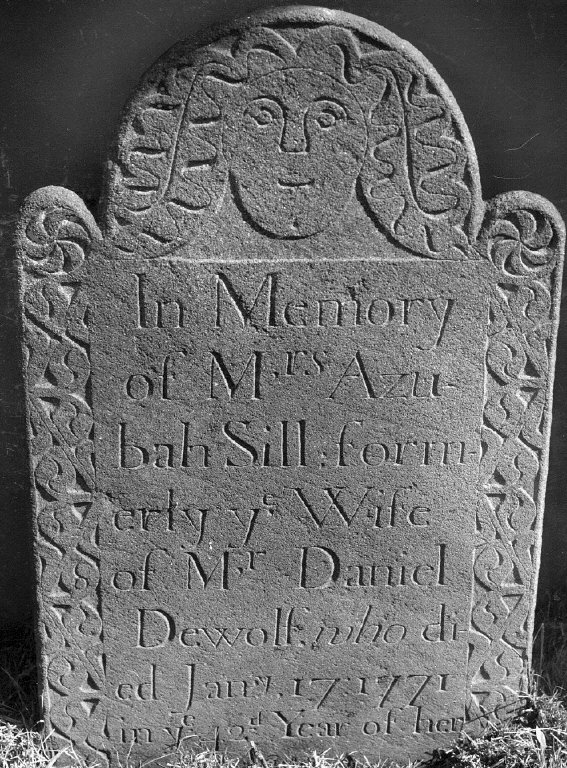 In Memory
of M,rs Azu-
bah Sill : form-
erly ye Wife
of M,r Daniel
Dewolf, who di-
ed Jan,ry, 17, 1771
in ye 42d Year of her